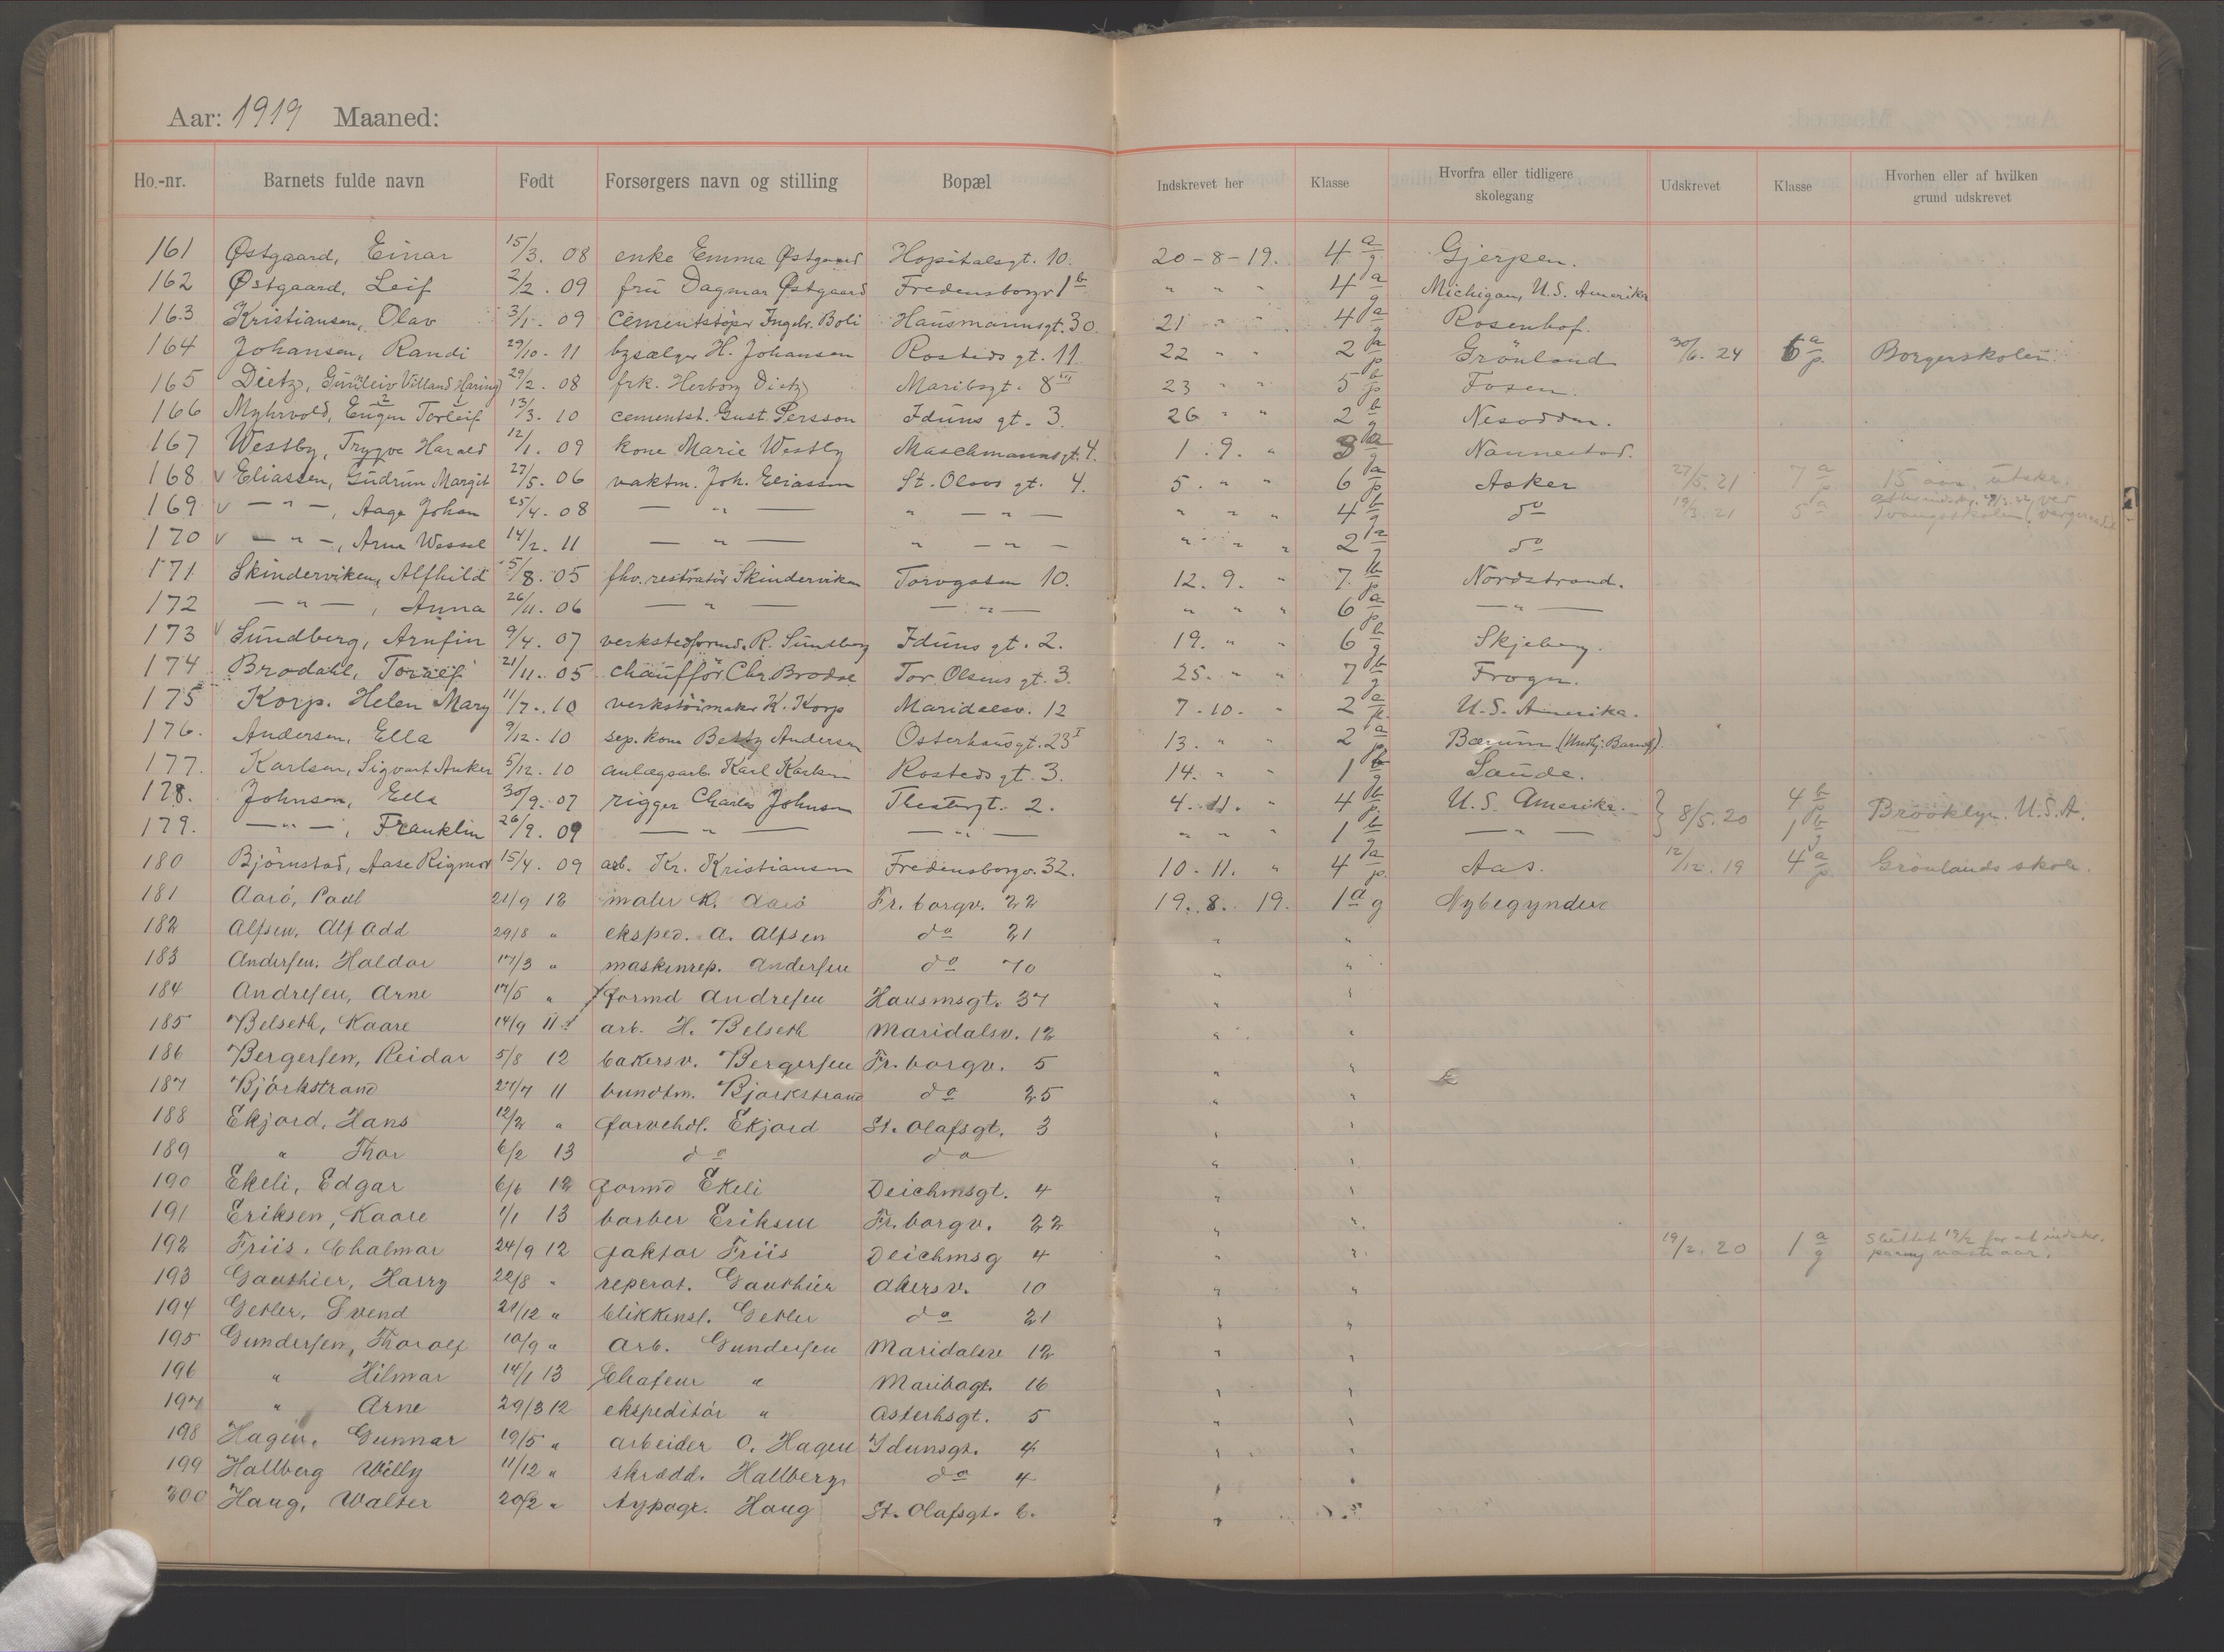 Aar: 1919 Maaned:
Ho.-nr. Barnets fulde navn Født Forsørgers navn og stilling Bopæl Indskrevet her Klasse Hvorfra eller tidligere skolegang Udskrevet Klasse Hvorhen eller af hvilken grund udskrevet
161 Østgaard, Einar 15/3. 08 enke Emma Østgaard Hopitalsgt. 10. 20-8-19. 4 a/g Gjerpen.
162 Østgaard, Leif 2/2. 09 fru Dagmar Østgaard Fredensborgv 1 b " " " 4 a/g Michigan, U.S. Amerika
163 Kristiansen, Olav 3/1. 09 Cementstöper Ingebr. Boli Hausmannsgt. 30. 21 " " 4 a/g Rosenhof.
164 Johansen, Randi 29/10. 11 bysælger H. Johansen Rosteds gt. 11 22 " " 2 a/p Grönland 30/6. 24 6 a/p. Borgerskolen
165 Dietz, Gunleiv Villand Haring 29/2. 08 frk. Herborg Dietz Maribogt. 8 III 23 " " 5 b/p Fosen.
166 Myhrvold, Eugen Torleif 13/3. 10 cementst. Gust. Persson Iduns gt. 3. 26 " " 2 b/g Nesodden.
167 Westby, Trygve Harald 12/1. 09 kone Marie Westby Maschmannsgt. 4. 1. 9. " 3 a/g Nannestad.
168 v Eliassen, Gudrun Margit 27/5. 06 vaktm. Joh. Eliassen St. Olavs gt. 4. 5. " " 6 a/p Asker 27/5. 21 7 a/p 15 aar, utskr.
169 v — " —, Aage Johan 25/4. 08 — " — " — " — " " " 4 b/g do 19/3. 21 5 a Tvangsskolen
170 v — " —, Arne Wessel 14/2. 11 — " — " — " — " " " 2 a/g do
171 Skinderviken, Alfhild 5/8. 05 fhv. restratör Skinderviken Torvgaten 10. 12. 9. " 7. b/p Nordstrand.
172 — " —, Anna 26/11. 06 — " — — " — " " " 6 a/p — " —
173 v Sundberg, Arnfin 9/4. 07 verkstedformd. R. Sundberg Iduns gt. 2. 19. " " 6 b/g Skjeberg.
174 Brodahl, Toralf 21/11. 05 chaufför Chr Brodal Tor. Olsens gt. 3. 25. " " 7 b/g Frogn.
175 Korp. Helen Mary 11/7. 10 verktöimaker K. Korp Maridalsv. 12 7. 10. " 2 a/p. U.S. Amerika.
176. Andersen, Ella 9/12. 10 sep. kone Betty Andersen Osterhausgt. 23 I 13. " " 2 a/p Bærum
177. Karlsen, Sigvart Anker 5/12. 10 anlægsarb. Karl Karlsen Rosteds gt. 3. 14. " " 1 b/g Saude.
178. Johnsen, Ella 30/9. 07 rigger Charles Johnsen Thestergt. 2. 4. 11. " 4 b/p U.S. Amerika. } 8/5. 20 4 b/p Brooklyn. U.S.A.
179. — " —, Franklin 26/9. 09 — " — — " — " " " 1 b/g — " — 1 b/g
180 Björnstad, Aase Rigmor 15/4. 09 arb. Kr. Kristiansen Fredensborgv. 32. 10. 11. " 4 a/p. Aas. 12/12. 19 4 a/p Grönlands skole.
181 Aarö, Paul 21/9 12 maler K. Aarö Fr. borgv. 22 19. 8. 19. 1 a g Nybegyndere
182 Alfsen, Alf Odd 29/8 " eksped. A. Alfsen do 21 " "
183 Andersen, Haldor 17/3 " maskinrep. Andersen do 70 " "
184 Andresen, Arne 17/5 " formd Andresen Hausmsgt. 37 " "
185 Belseth, Kaare 14/9 11 arb. H. Belseth Maridalsv. 12 " "
186 Bergersen, Reidar 5/8 12 bakersv. Bergersen Fr. borgv. 5 " "
187 Björkstrand 27/7 11 bundtm. Bjorkstrand do 25 " "
188 Ekjord, Hans 12/2 " farvehdl. Ekjord St. Olafsgt. 3 " "
189 " Thor 6/2 13 do do " "
190 Ekeli, Edgar 6/6 12 formd Ekeli Deichmsgt. 4 " "
191 Eriksen, Kaare 1/1 13 barber Eriksen Fr. borgv. 22 " "
192 Friis, Chalmar 24/9 12 faktor Friis Deichmsg 4 " " 19/2. 20 1 a/g sluttet 19/2 for at indskr. paany næste aar.
193 Gauthier, Harry 22/8 " reperat. Gauthier Akersv. 10 " "
194 Getler, Svend 21/12 " blikkensl. Getler do 21 " "
195 Gundersen, Thoralf 10/9 " Arb. Gundersen Maridalsv 12 " "
196 " Hilmar 14/1 13 Chafeur " Maribogt. 16 " "
197 " Arne 29/3 12 ekspeditör " Osterhsgt. 5 " "
198 Hagen, Gunnar 19/5 " arbeider O. Hagen Idunsgt. 4 " "
199 Hallberg Willy 11/12 " skrædd. Hallberg do 4 " "
200 Haug, Walter 20/2 " typogr. Haug St. Olafsgt. 6. " "